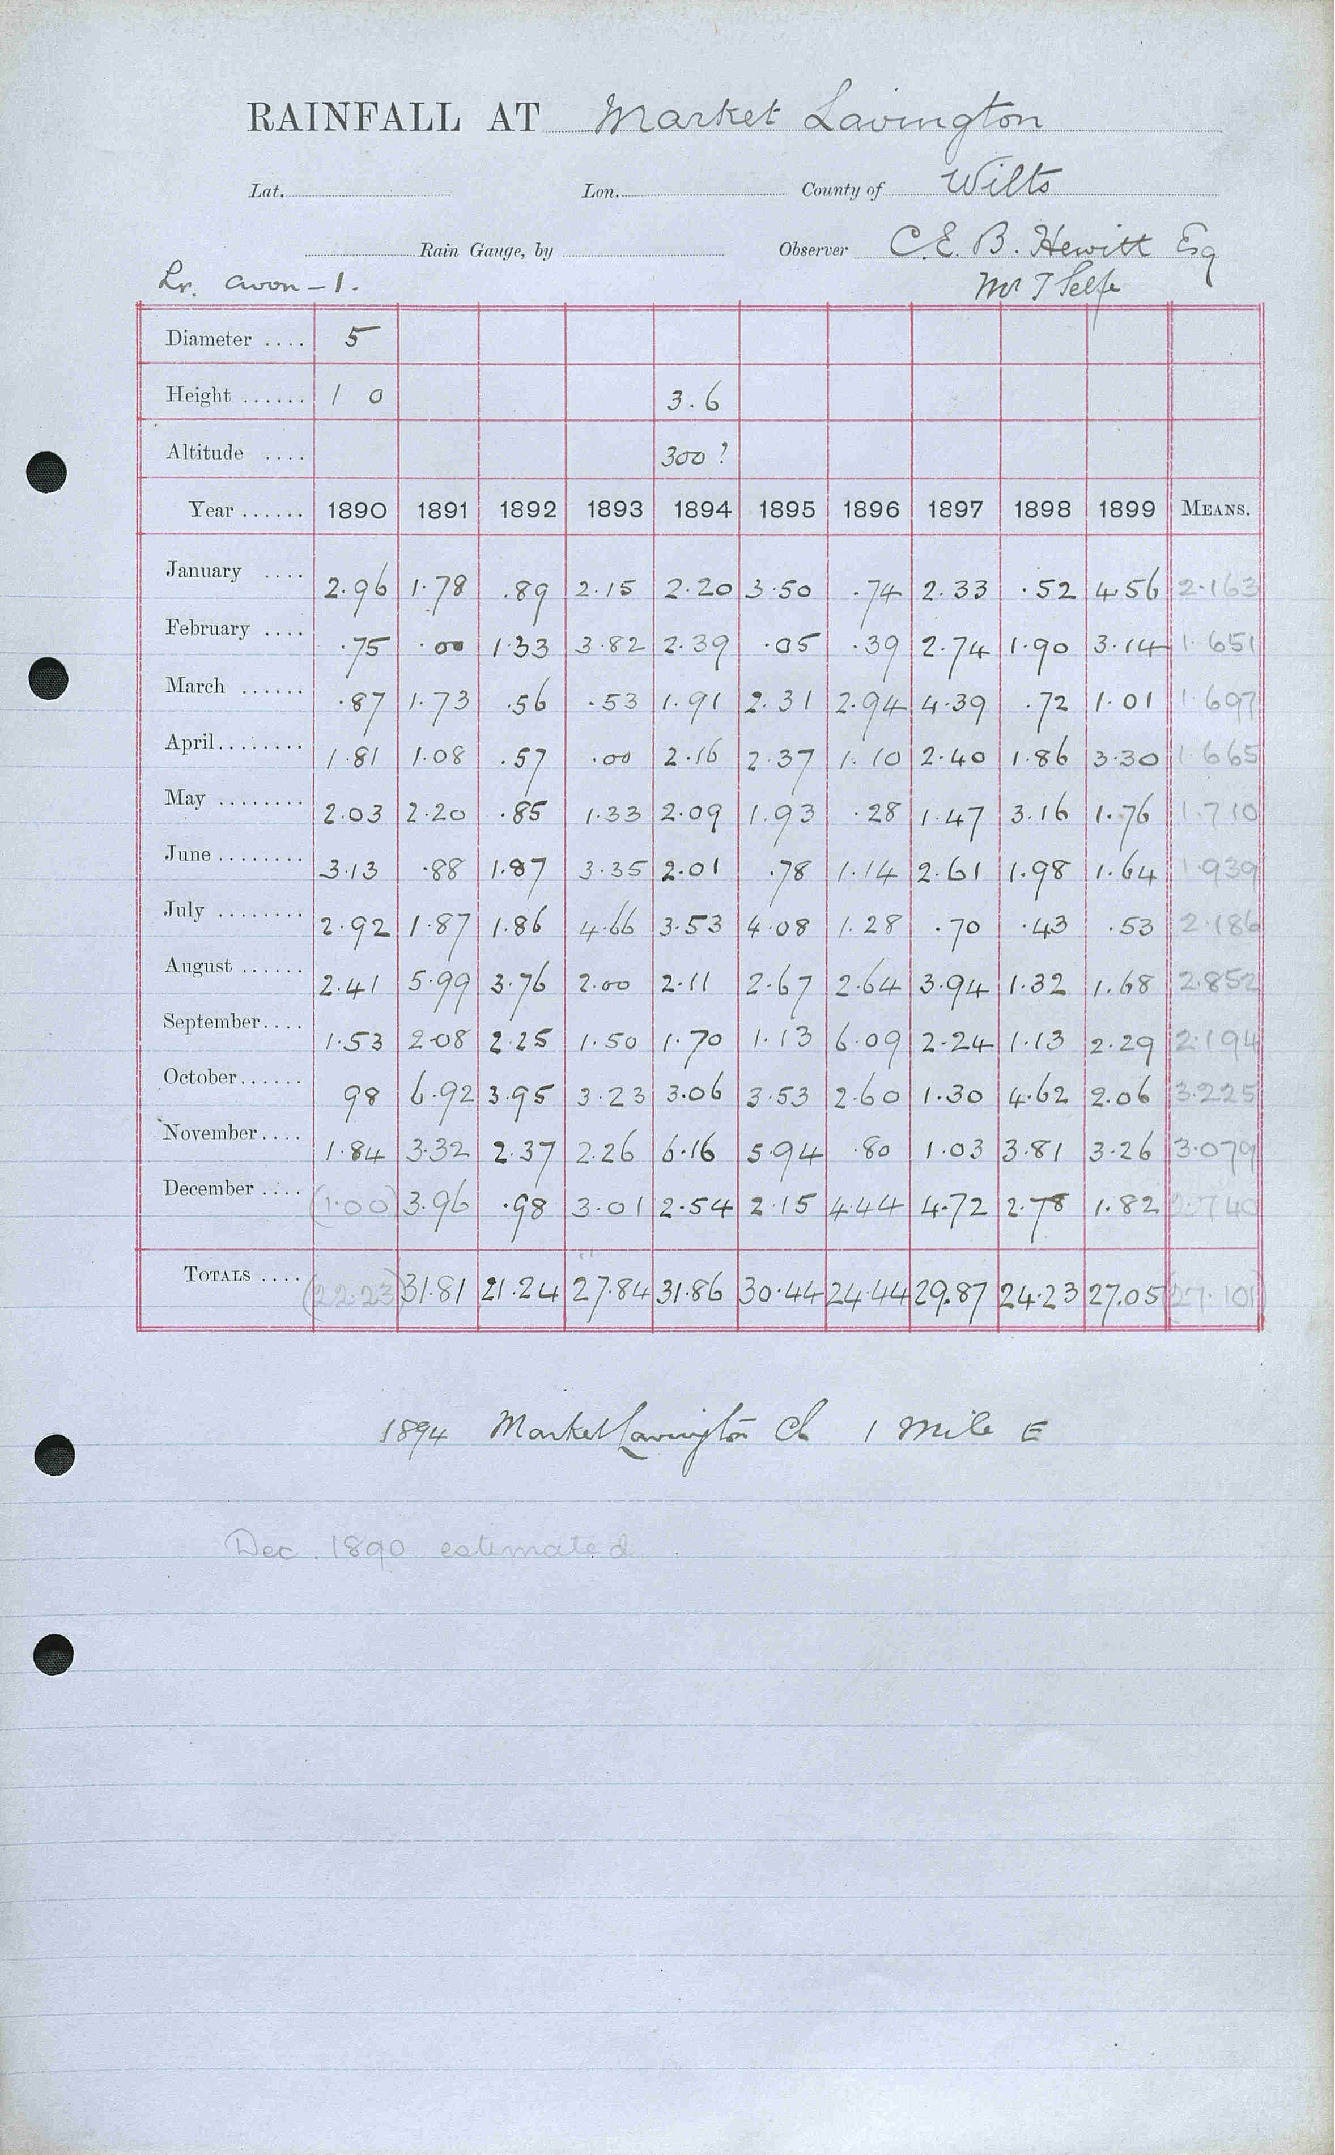 RAINFALL AT Market Lavington
Lat. Lon. County of Wilts
Rain Gauge, by Observer C.E.B. Hewitt Esq
Lr. Avon - 1. Mr T Selfe
Diameter .... 5
Height ...... 1 0 3.6
Altitude .... 300?
Year ...... 1890 1891 1892 1893 1894 1895 1896 1897 1898 1899 MEANS.
January .... 2.96 1.78 .89 2.15 2.20 3.50 .74 2.33 .52 4.56 2.163
February .... .75 .00 1.33 3.82 2.39 .05 .39 2.74 1.90 3.14 1.651
March ...... .87 1.73 .56 .53 1.91 2.31 2.94 4.39 .72 1.01 1.697
April........ 1.81 1.08 .57 .00 2.16 2.37 1.10 2.40 1.86 3.30 1.665
May ........ 2.03 2.20 .85 1.33 2.09 1.93 .28 1.47 3.16 1.76 1.710
June ........ 3.13 .88 1.87 3.35 2.01 .78 1.14 2.61 1.98 1.64 1.939
July ........ 2.92 1.87 1.86 4.66 3.53 4.08 1.28 .70 .43 .53 2.186
August ...... 2.41 5.99 3.76 2.00 2.11 2.67 2.64 3.94 1.32 1.68 2.852
September.... 1.53 2.08 2.25 1.50 1.70 1.13 6.09 2.24 1.13 2.29 2.194
October...... 98 6.92 3.95 3.23 3.06 3.53 2.60 1.30 4.62 2.06 3.225
November.... 1.84 3.32 2.37 2.26 6.16 5.94 .80 1.03 3.81 3.26 3.079
December .... (1.00) 3.96 .98 3.01 2.54 2.15 4.44 4.72 2.78 1.82 2.740
TOTALS .... (22.23) 31.81 21.24 27.84 31.86 30.44 24.44 29.87 24.23 27.05 (27.101)
1894 Market Lavington Ch 1 Mile E
Dec. 1890 estimated